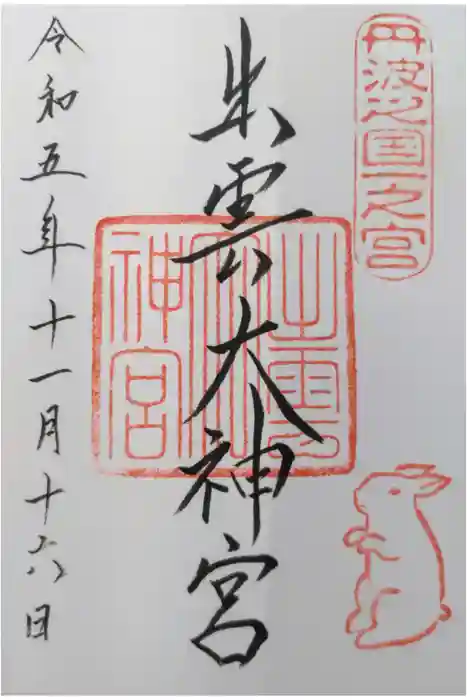 丹波国一之宮
出雲大神宮
令和五年十一月十六日